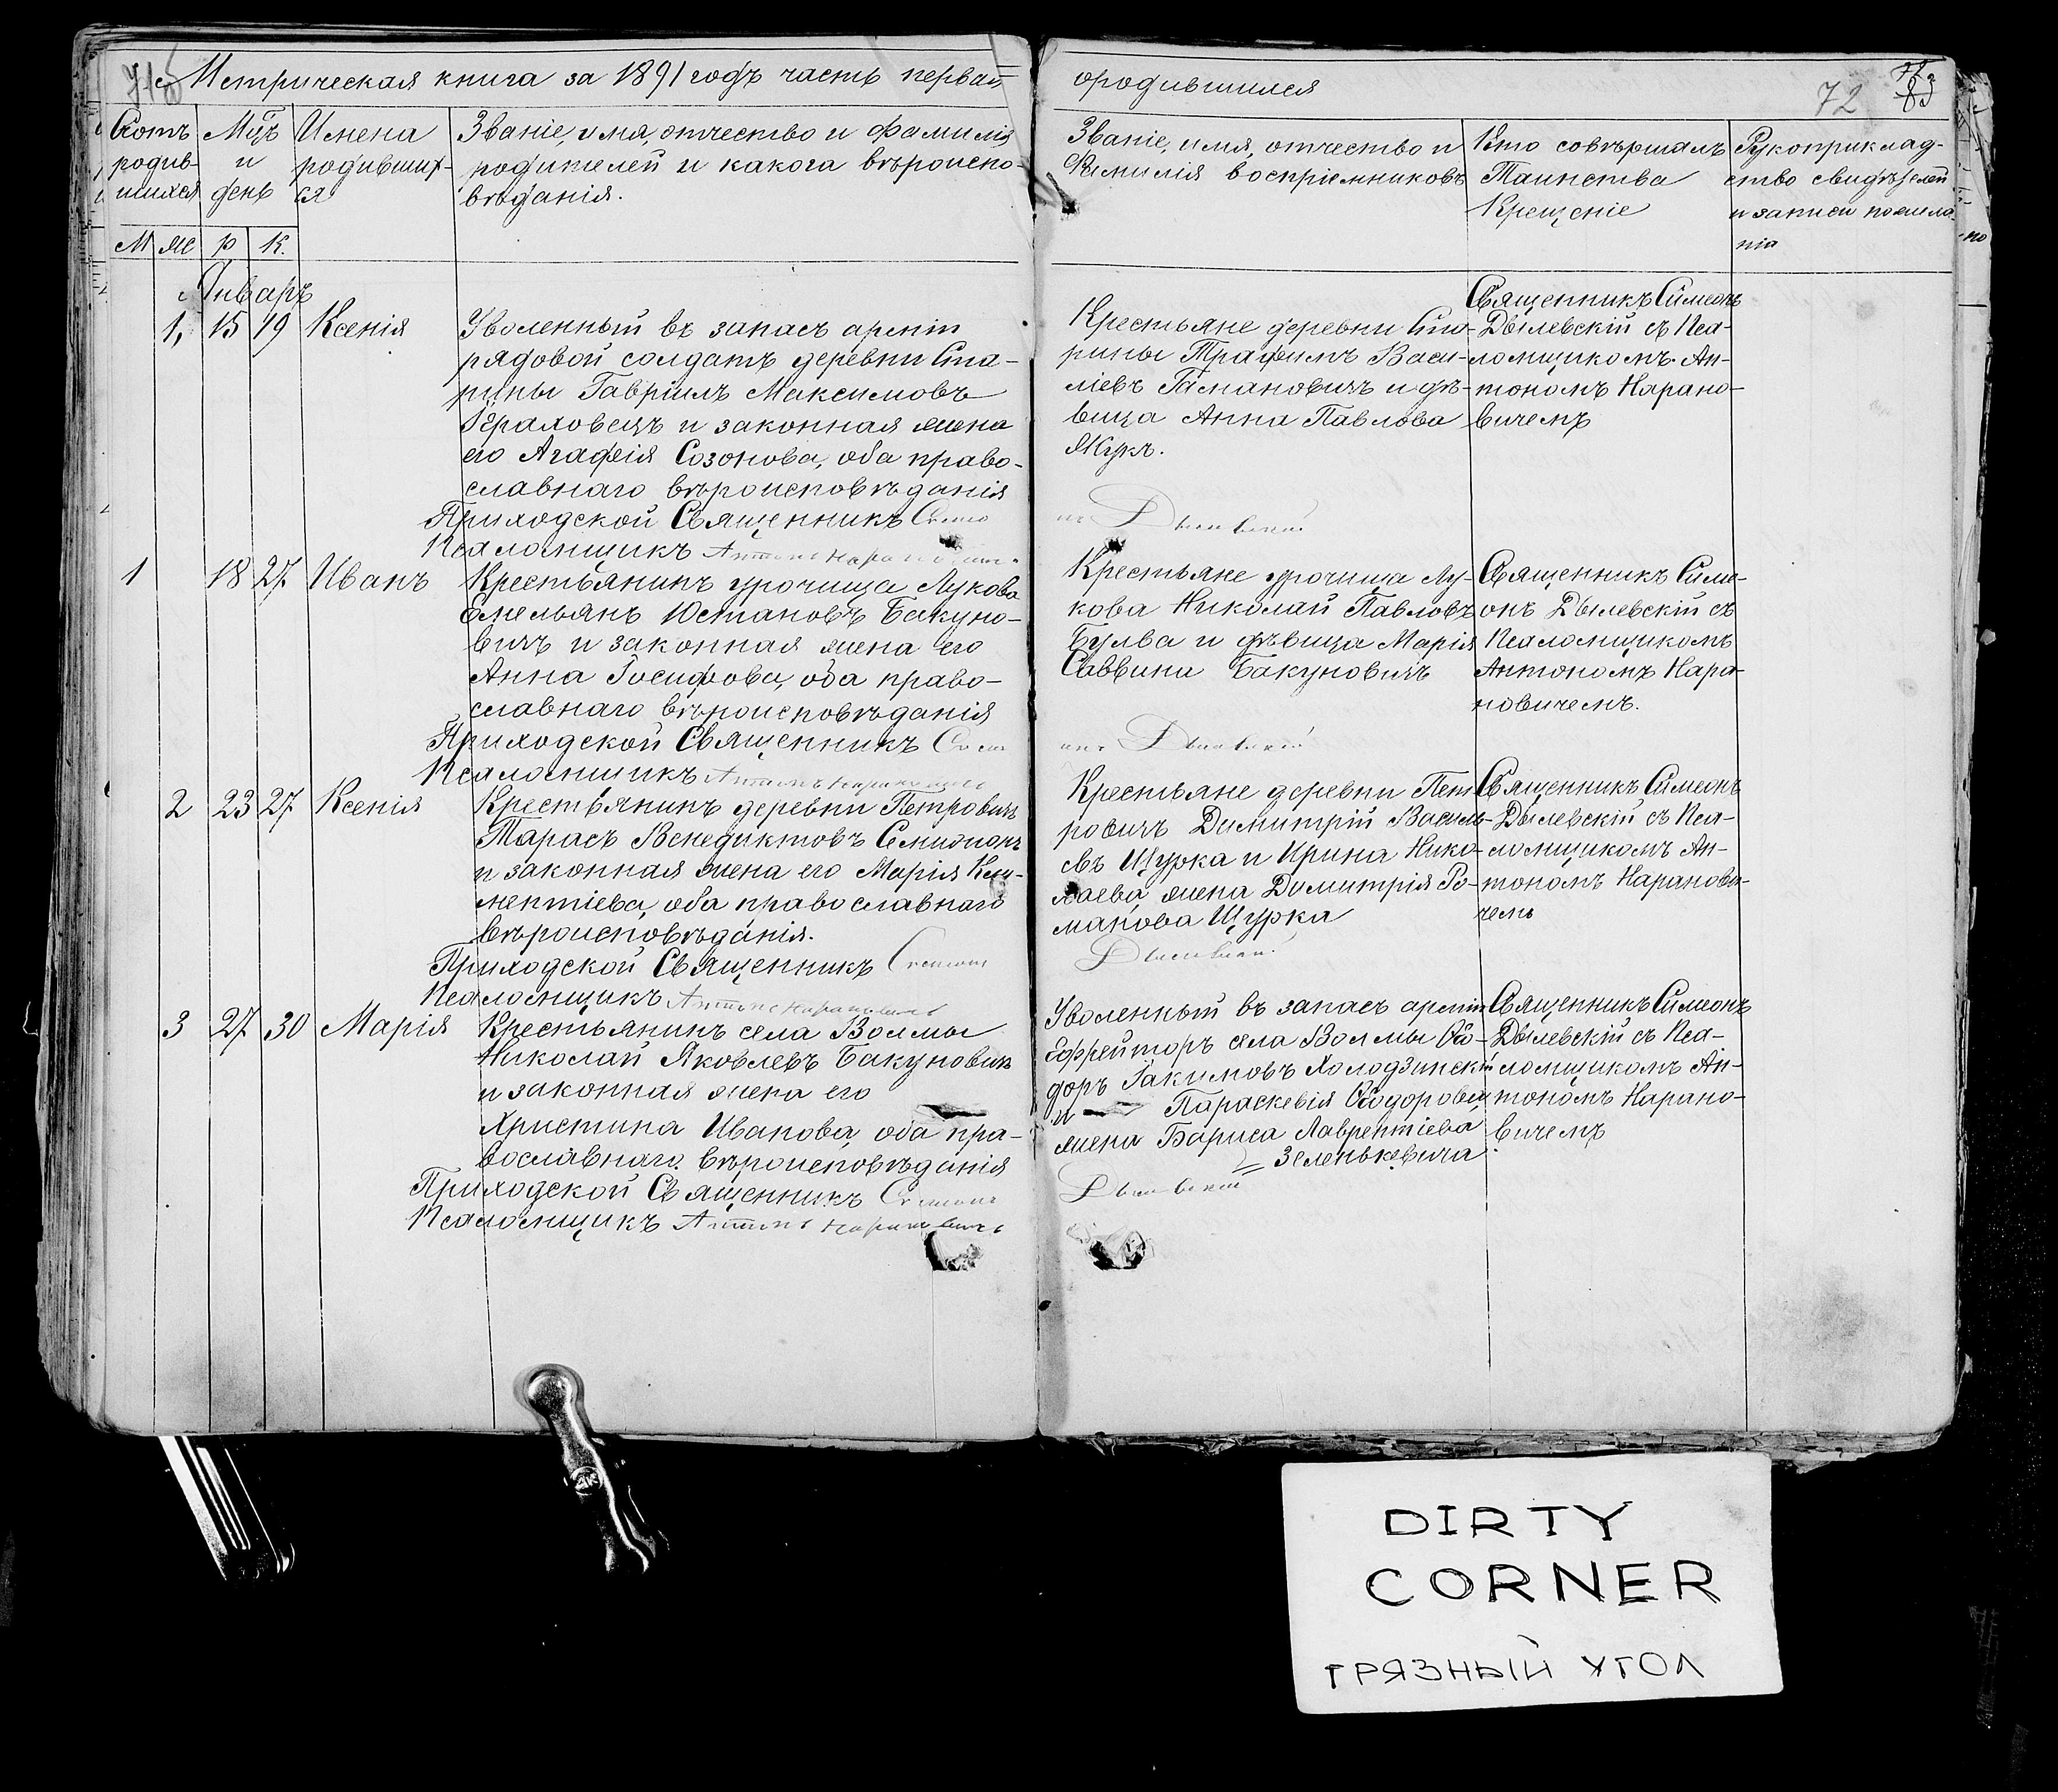 Метрическая книга за 1891 годъ часть первая
о родившихся
72
Счетъ родив-шихся
Мѣц. и день
Имена родивших-ся
Званіе, имя, отчество и фамилія
родителей и какога вѣроиспо-
вѣданія.
Званіе, имя, отчество и
Фамилія воспріемниковъ
Кто совѣршалъ
Таинства
Крещеніе
Рукоприклад-
ство свидѣтелей
и записи
М ж р к.
Январь
1, 15 19 Ксенія
Уволенный въ запасъ арміи
рядовой солдатъ деревни Ста-
рины Гавріилъ Максимовъ
Гераховецъ и законная жена
его Агафія Созонова, оба право-
славнаго вѣроисповѣданія
Приходской Священникъ Симео
Псаломщикъ Антонъ Нарановичъ
Крестьяне деревни Ста-
рины Трафимъ Васи-
ліевъ Гамановичъ и дѣ-
вица Анна Павлова
Жукъ.
нъ Дылевскій
Священникъ Симеонъ
Дылевскій съ Пса-
ломщикомъ Ан-
тономъ Нарано-
вичемъ
1 18 27 Иванъ
Крестьянинъ урочища Лукова
Емельянъ Юстиновъ Бакуно-
вичъ и законная жена его
Анна Іосифова, оба право-
славнаго вѣроисповѣданія
Приходской Священникъ Симе
Псаломщикъ Антонъ Нарановичъ
Крестьяне урочища Лу-
кова Николай Павловъ
Булва и дѣвица Марія
Саввина Бакуновичъ
онъ Дылевскій
Священникъ Симе-
онъ Дылевскій съ
Псаломщикомъ
Антономъ Нара-
новичемъ.
2 23 27 Ксенія
Крестьянинъ деревни Петровичъ
Тарасъ Венедиктовъ
и законная жена его Марія Кли-
ментіева, оба православнаго
вѣроисповѣданія.
Приходской Священникъ Симеонъ
Псаломщикъ Антонъ Нарановичъ
Крестьяне деревни Пет
ровичъ Димитрій Василь-
евъ Щурка и Ирина Нико-
лаева, жена Димитрія Ро-
манова Щурка
Дылевскій
Священникъ Симеонъ
Дылевскій съ Пса-
ломщикомъ Ан-
тономъ Наранови-
чемъ
3 27 30 Марія
Крестьянинъ села Волмы
Николай Яковлевъ Бакуновичъ
и законная жена его
Христина Иванова, оба пра-
вославнаго вѣроисповѣданія
Приходской Священникъ Симеонъ
Псаломщикъ Антонъ Нарановичъ
Уволенный въ запасъ арміи
Ефрейторъ села Волмы Ѳео-
доръ Іакимовъ Холодзинскій
и Параскевія Ѳеодорова
жена Бариса Лаврентіева
Зеленькевича
Дылевскій
Священникъ Симеонъ
Дылевскій съ Пса-
ломщикомъ Ан-
тономъ Нарано-
вичемъ
DIRTY
CORNER
ГРЯЗНЫЙ УГОЛ